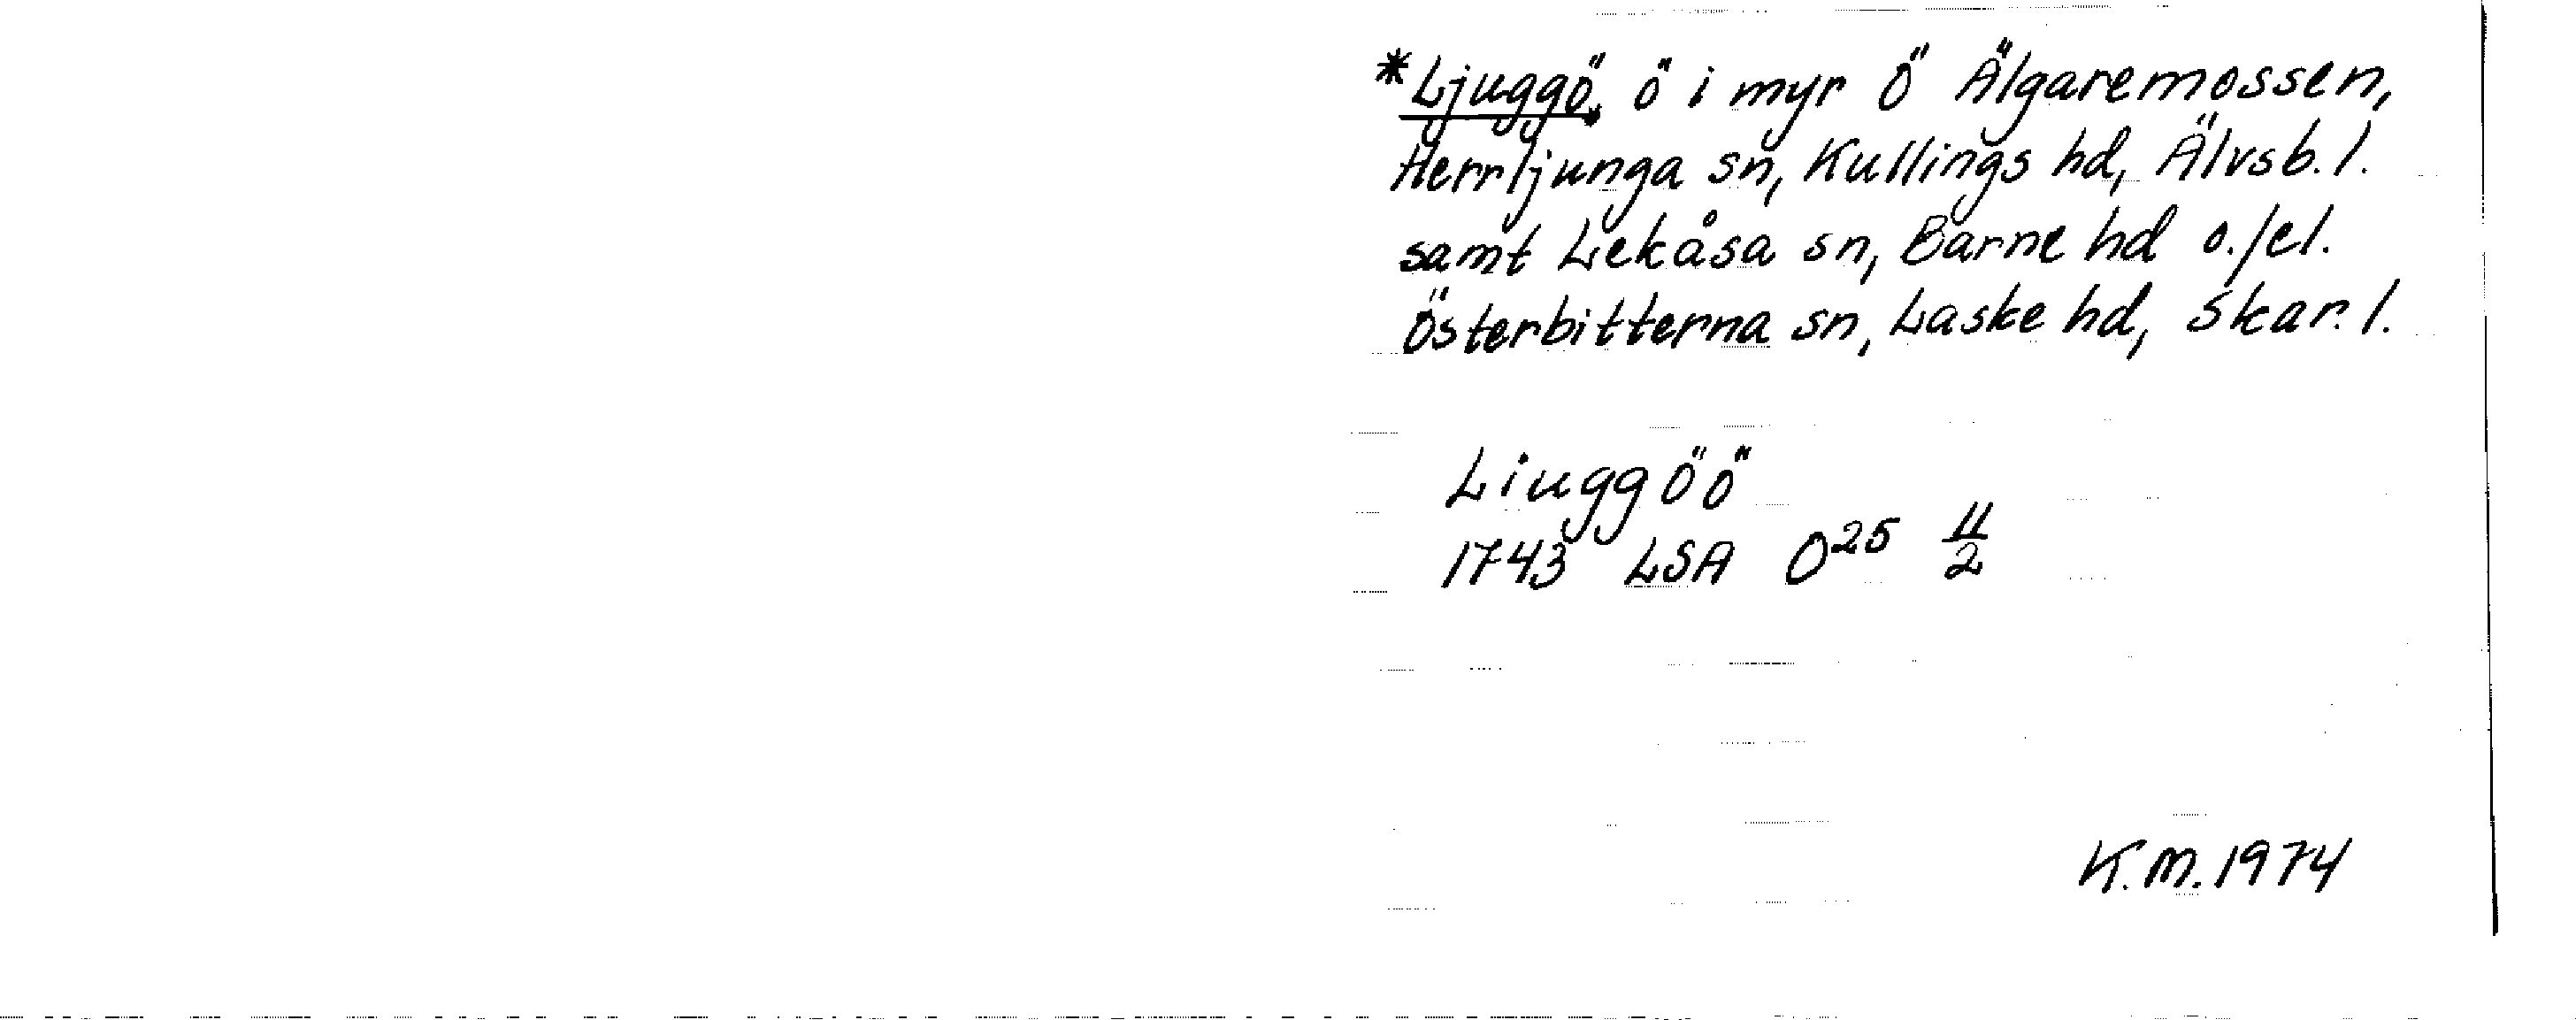 *Ljuggö, ö i myr Ö Älgaremossen,
Herrljunga sn, Kullings hd, Älvsb. l.
samt Lekåsa sn, Barne hd o./el.
Österbitterna sn, Laske hd, Skar. l.
Liuggöö
1743 LSA O25 11/2
K.M. 1974